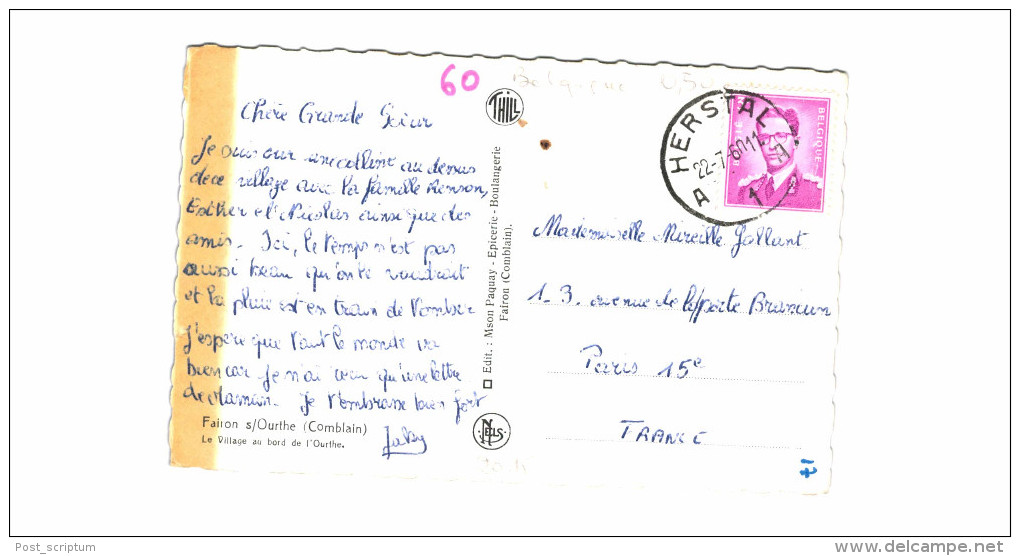 60
Belgique 0,50
THILL
HERSTAL
22-7-60 11
A 1 A
BELGIQUE
Chère Grande Soeur
Je suis sur une colline au dessus
de ce village avec la famille Renson,
Esther et Nicolas ainsi que des
amis. Ici, le temps n'est pas
aussi beau qu'on le voudrait
et la pluie est en train de tomber
J'espère que tout le monde va
bien car je n'ai reçu qu'une lettre
de Maman. Je t'embrasse bien fort
Fairon s/Ourthe (Comblain)
Le Village au bord de l'Ourthe.
Edit.: Mson Paquay - Epicerie - Boulangerie
Fairon (Comblain).
NELS
Mademoiselle Mireille Gallant
1-3. avenue de la Porte Brancion
Paris 15e
FRANCE
Post_scriptum
www.delcampe.net